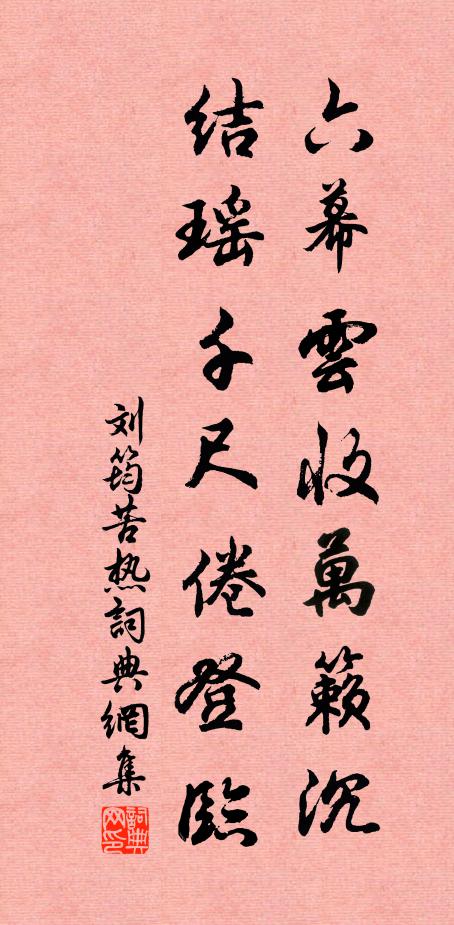 六幕雲收萬籟沉
結瑶千尺倦登臨
刘筠苦热詞典網集
詞典网印